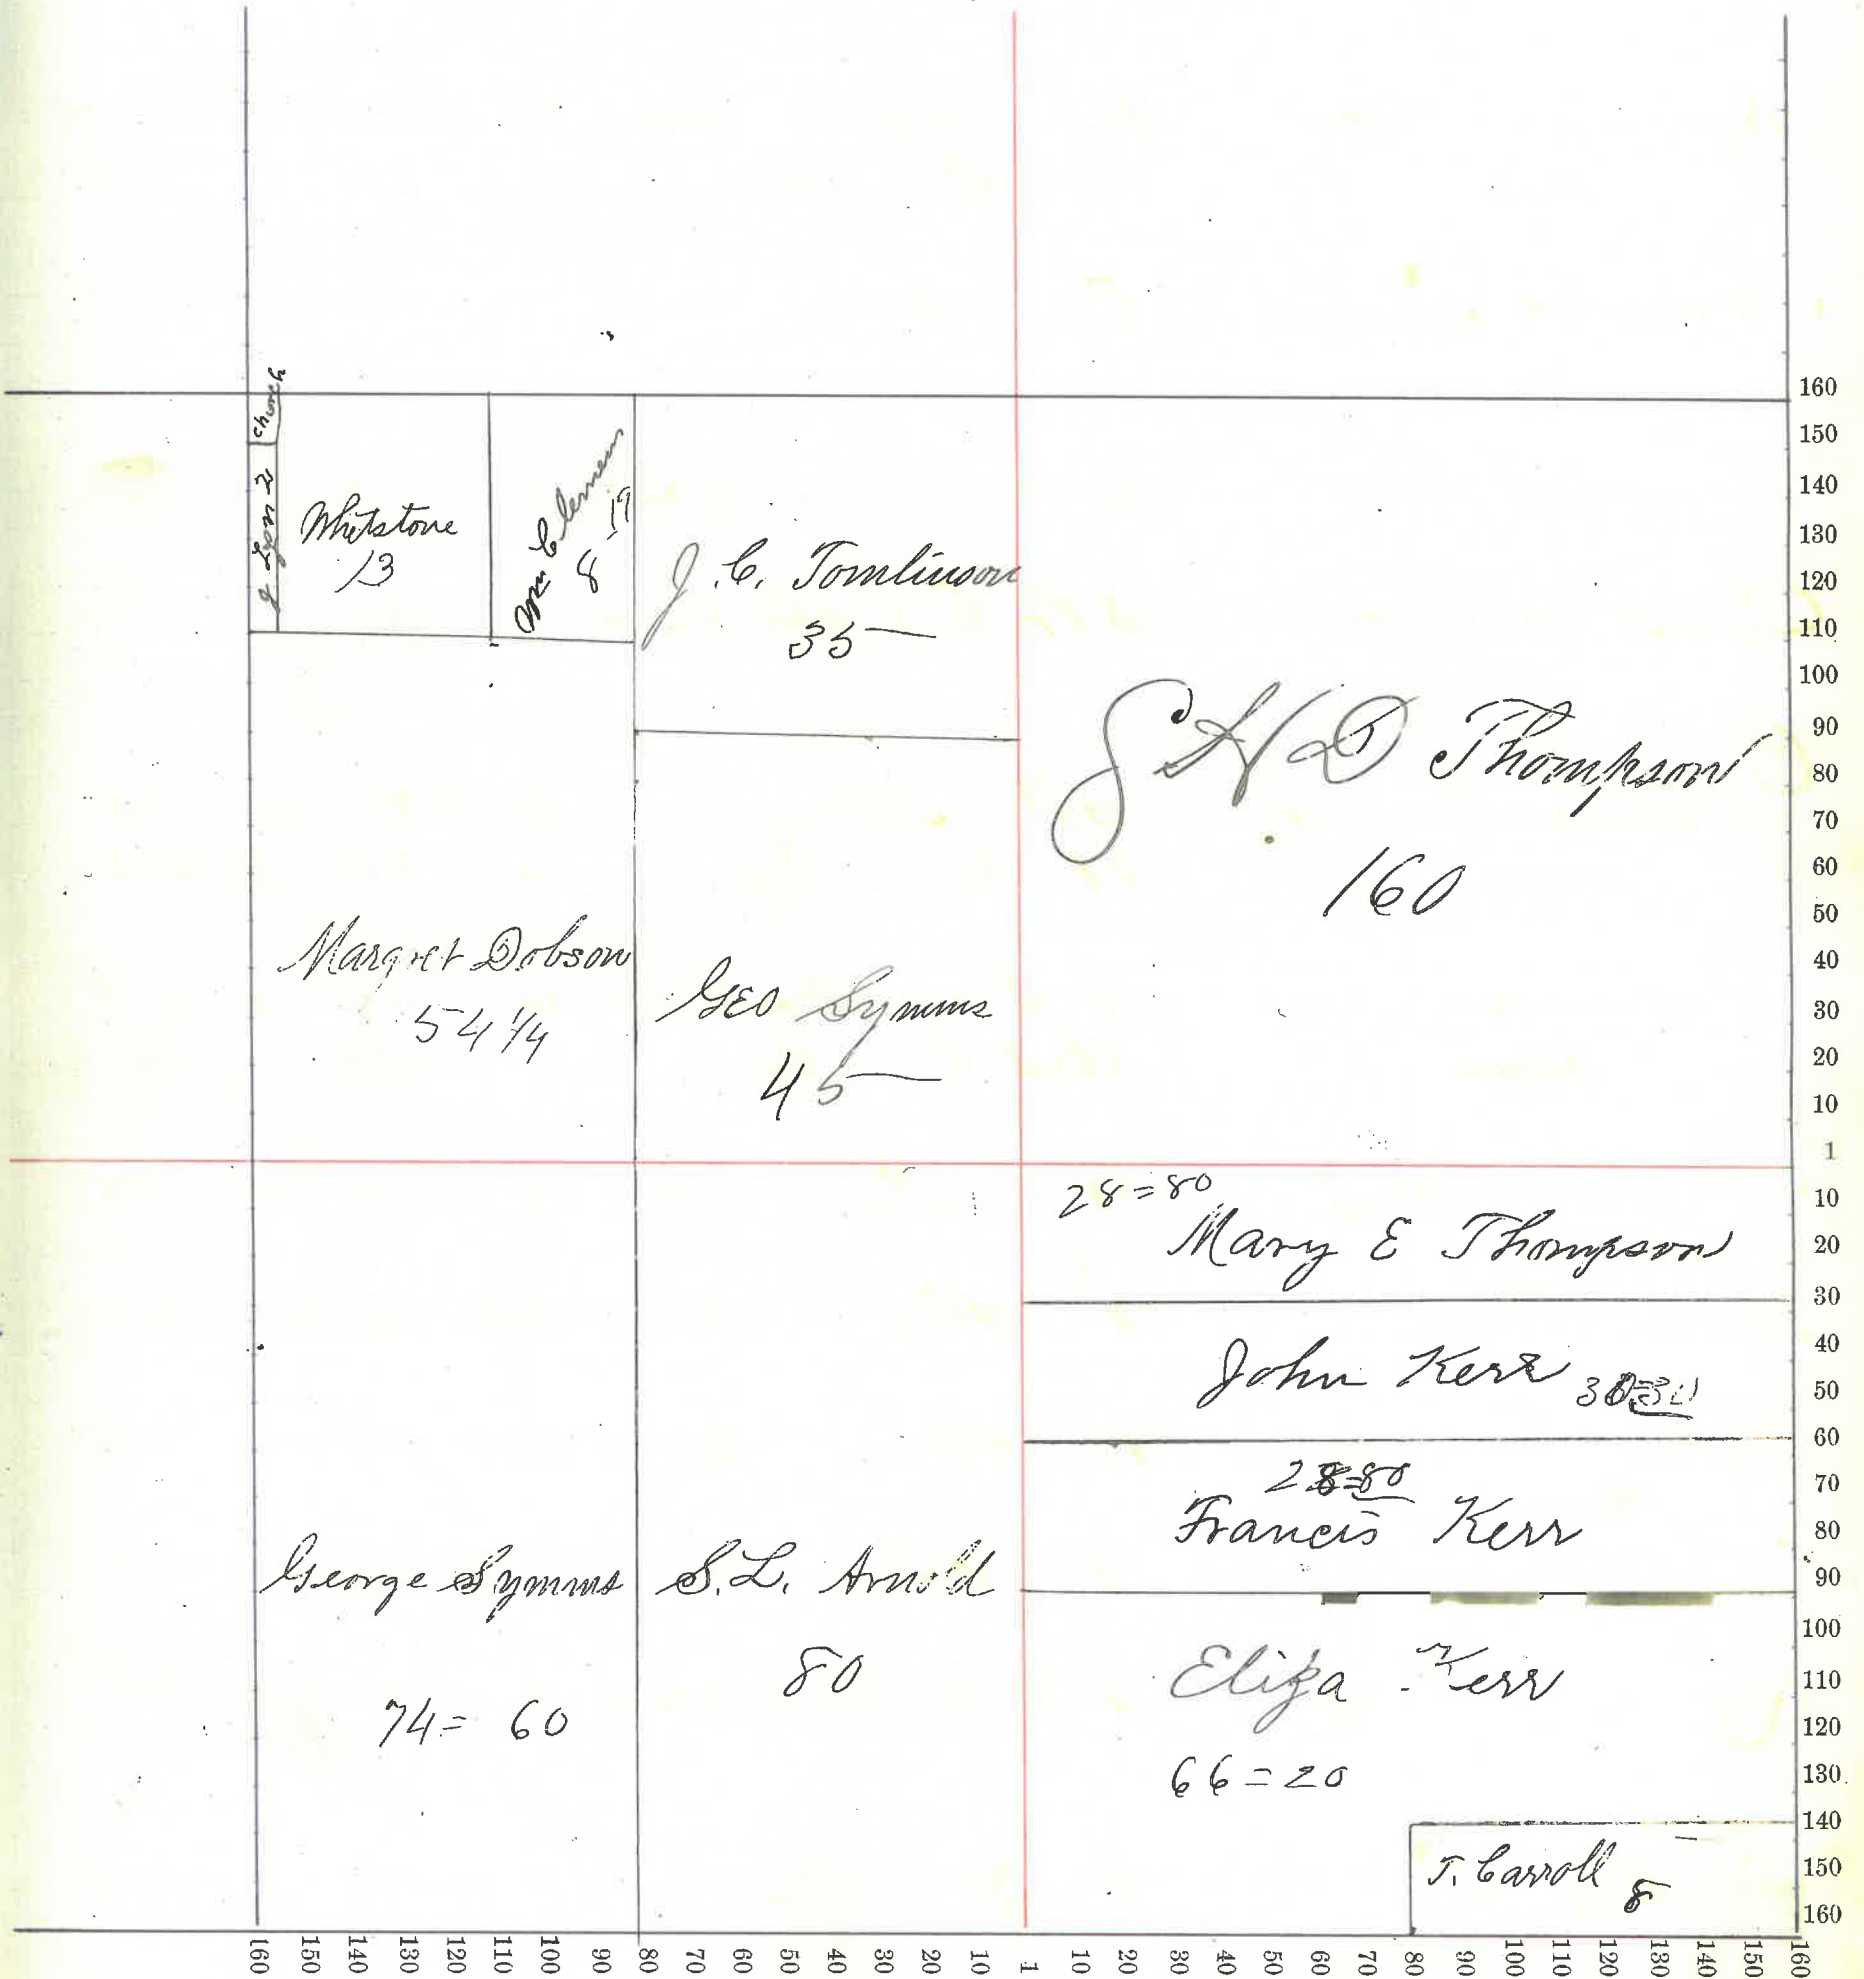 Church
J Lyon 2
Whitstone
13
Wm Clemens
8-19
J. C. Tomlinson
35
S H D Thompson
160
Margret Dobson
54 1/4
GEO Symms
45
28=80
Mary E Thompson
John Kerr 30=30
28=80
Francis Kerr
George Symms
74= 60
S. L. Arnold
80
Eliza Kerr
66=20
T. Carroll 8
160
150
140
130
120
110
100
90
80
70
60
50
40
30
20
10
1
10
20
30
40
50
60
70
80
90
100
110
120
130
140
150
160
160 150 140 130 120 110 100 90 80 70 60 50 40 30 20 10 1 10 20 30 40 50 60 70 80 90 100 110 120 130 140 150 160